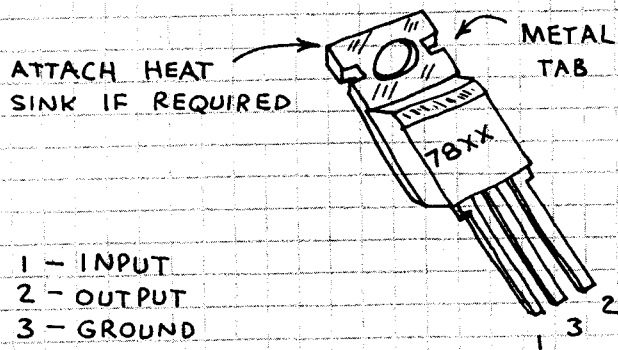 ATTACH HEAT
SINK IF REQUIRED
METAL
TAB
78XX
1 - INPUT
2 - OUTPUT
3 - GROUND
1 3 2